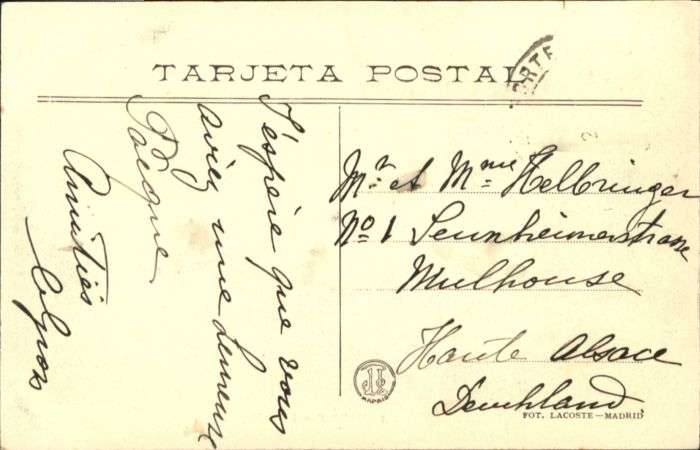 TARJETA POSTAL
J'espère que vous
aviez une heureuse
Pacque
Amitiés
Mr & Mme Helbringer
No 1 Sennheimerstrasse
Mulhouse
Haute Alsace
Deuchland
FOT. LACOSTE — MADRID
MADRID